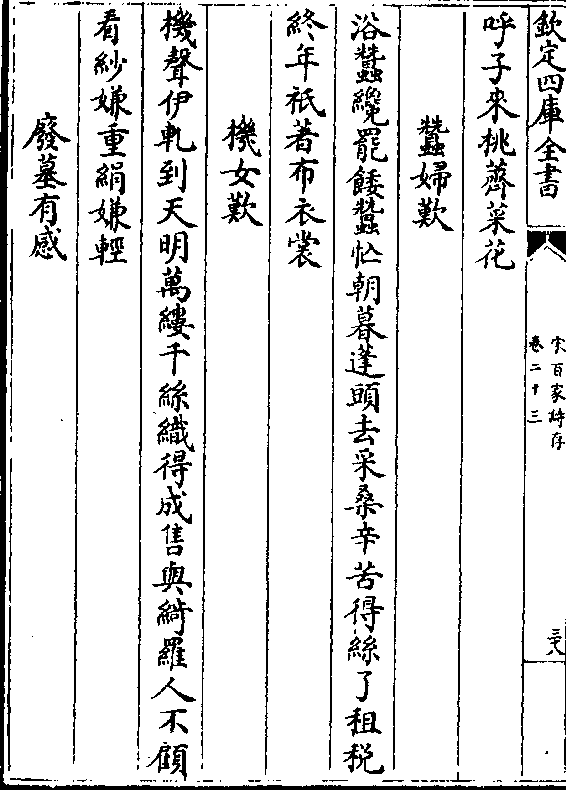 欽定四庫全書
宋百家詩存
卷二十三
三八
呼子來挑薺菜花
蠶婦歎
浴蠶纔罷餧蠶忙朝暮蓬頭去采桑辛苦得絲了租稅
終年衹著布衣裳
機女歎
機聲伊軋到天明萬縷千絲織得成售與綺羅人不顧
看紗嫌重絹嫌輕
廢墓有感